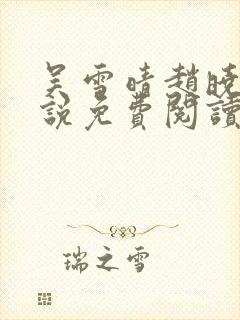 吴雪晴趙晓
說免費閱讀
瑞之雪